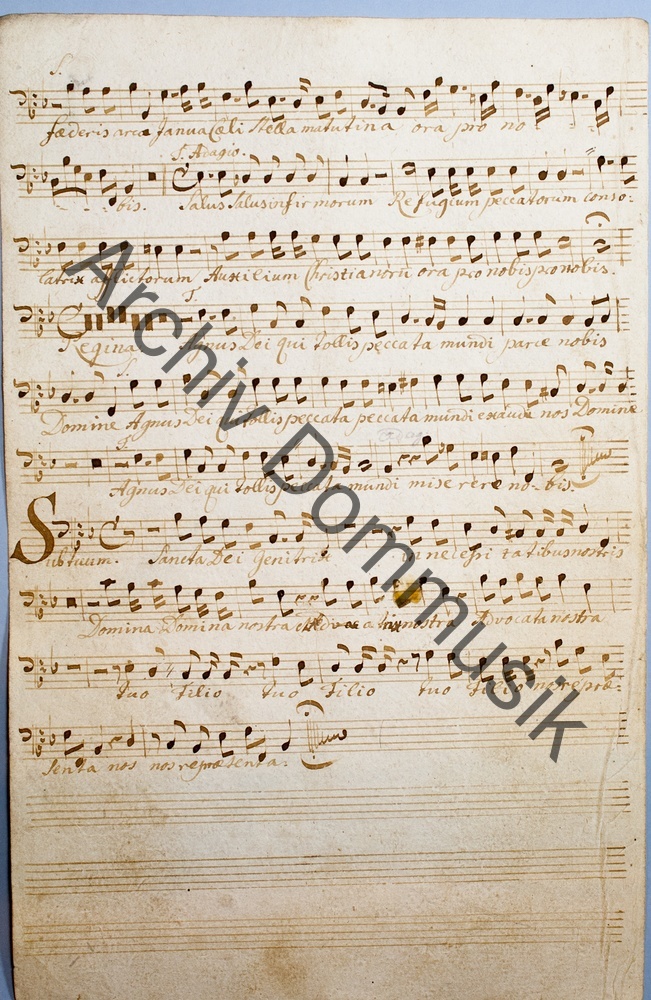 S.
fœderis arca Janua Cœli Stella matutina ora pro no-
S. Adagio.
bis. Salus Salus infirmorum Refugium peccatorum conso-
latrix aflictorum Auxilium Christianoru ora pro nobis pro nobis.
S.
Regina Agnus Dei qui tollis peccata mundi parce nobis
S.
Domine Agnus Dei qui tollis peccata peccata mundi exaudi nos Domine
S.
Agnus Dei qui tollis peccata mundi miserere no-bis.
Sub tuum. Sancta Dei Genitrix in necessitatibus nostris
Domina Domina nostra nostra Advocata nostra
tuo Filio tuo Filio tuo Filio nos repræ-
senta nos nos repræsenta.
Archiv Dommusik